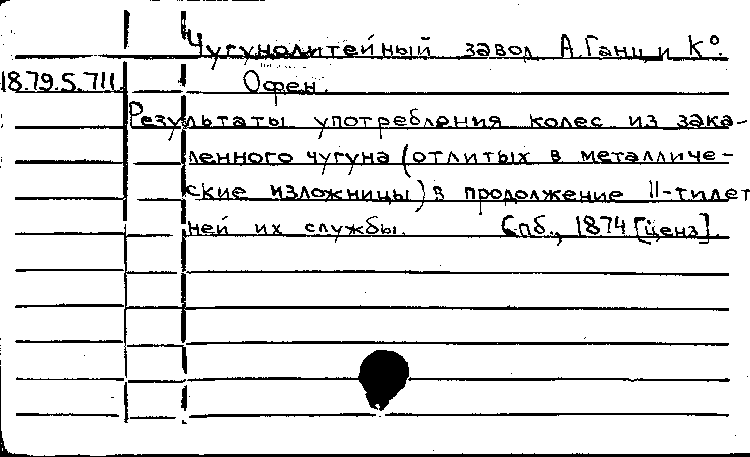 Чугунолитейный завод А. Ганц и К°.
18.79.5.711. Офен.
Результаты употребления колес из зака-
ленного чугуна (отлитых в металличе-
ские изложницы) в продолжение 11-тилет
ней их службы. Спб., 1874 [ценз].